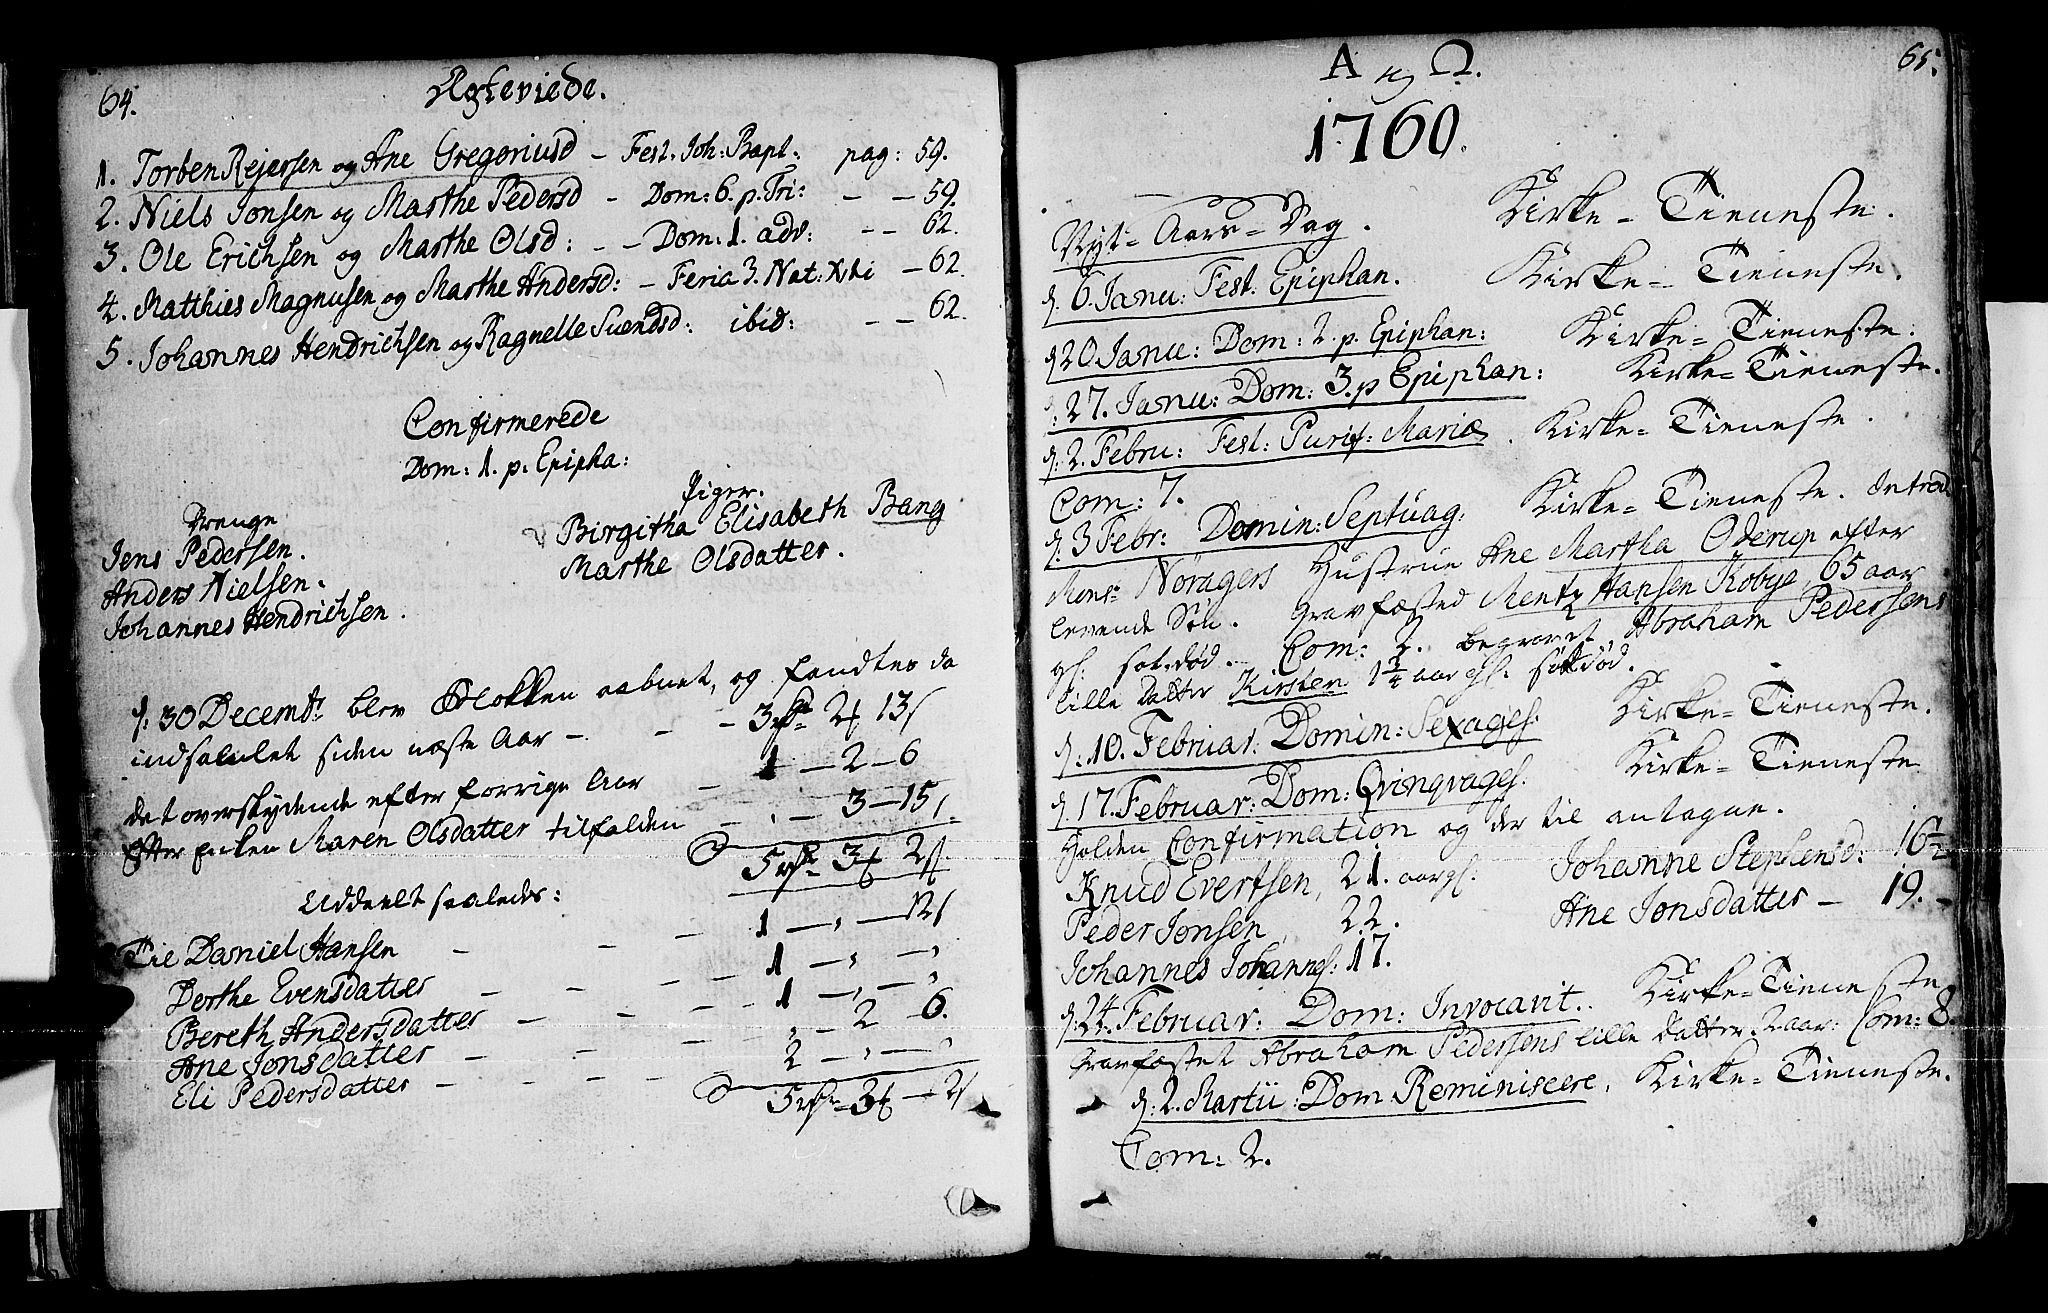 64.
Ægteviede.
1. Torben Rejersen og Ane Gregoriusd – Fest. Joh: Bapt: pag: 59.
2. Niels Jonsen og Marthe Pedersd – Dom: 6. p. Tri: – – 59.
3. Ole Erichsen og Marthe Olsd: – – Dom: 1. adv: – – 62.
4. Matthies Magnusen og Marthe Andersd: – Feria 3. Nat: Xti – 62.
5. Johannes Hendrichsen og Ragnelle Suendsd: ibid: – – 62.
Confirmerede
Dom: 1. p. Epipha:
Drenge
Jens Pedersen.
Anders Nielsen.
Johannes Hendrichsen.
Piger.
Birgitha Elisabeth Bang
Marthe Olsdatter.
d: 30 Decembr blev Blokken aabnet, og fandtes da
indsamlet siden næste Aar – – – 3 rd 2 13
det overskydende efter forrige Aar – 1 – 2 – 6
Efter Enken Maren Olsdatter tilfalden – – 3 – 15
5 rd 3 2
Uddeelt saaledes:
Til Daniel Hansen – – – 1 – " – 12
Berthe Evensdatter – – – 1 – " – "
Bereth Andersdatter – – – 1 – " – "
Ane Jonsdatter – – – " – 2 6.
Eli Pedersdatter – – – 2 – " – "
5 rd – 3 – 2
65.
A og Ω.
1760.
Nyt-Aars-Dag. Kirke-Tieneste.
d. 6. Janu: Fest. Epiphan. Kirke-Tieneste.
d 20 Janu: Dom: 2. p. Epiphan: Kirke-Tieneste.
d: 27. Janu: Dom: 3. p Epiphan: Kirke-Tieneste.
d: 2. Febru: Fest: Purif: Mariæ. Kirke-Tieneste.
Com: 7.
d: 3 Febr: Domin: Septuag. Kirke-Tieneste. Introd.
Monsr Nøragers Hustrue Ane Martha Oderup efter
levende Søn. Gravfæsted Mentz Hansen Kobye, 65 aar
gl. sot-død. Com: 2. begravet Abraham Pedersens
lille datter Kirsten 1 1/4 aar gl. sotdød.
d: 10. Februar: Domin: Sexages. Kirke-Tieneste.
d: 17. Februar: Dom: Qvinqvages. Kirke-Tieneste
Holden Confirmation og der til antagne.
Knud Evertsen, 21. aar gl. Johanne Stephensd: 16 1/2
Peder Jonsen, 22. Ane Jonsdatter – 19.
Johannes Johannes: 17.
d: 24. Februar: Dom: Invocavit. Kirke-Tieneste
Gravfæstet Abraham Pedersens lille datter 2 aar: Com: 8.
d: 2. Martii: Dom Reminiscere. Kirke-Tieneste.
Com: 2.